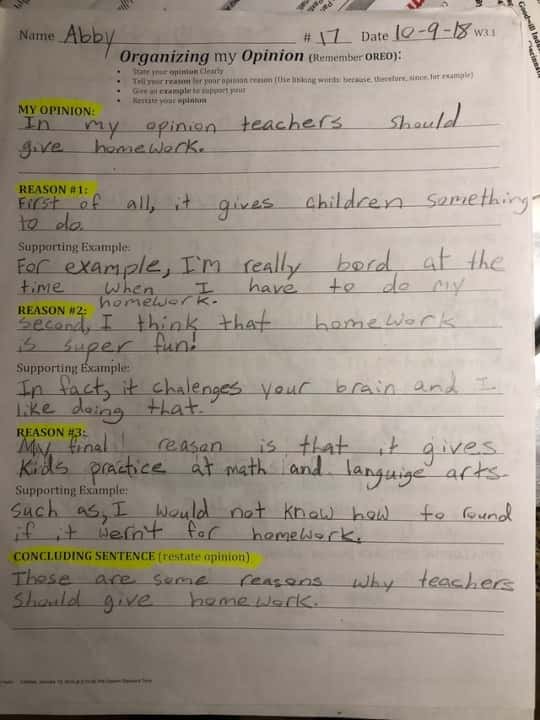 Name Abby # 17 Date 10-9-18 W3.1
Organizing my Opinion (Remember OREO):
• State your opinion Clearly
• Tell your reason for your opinion reason (Use linking words: because, therefore, since, for example)
• Give an example to support your
• Restate your opinion
MY OPINION:
In my opinion teachers should
give homework.
REASON #1:
First of all, it gives children something
to do.
Supporting Example:
For example, I'm really bord at the
time when I have to do my
homework.
REASON #2:
Second, I think that homework
is super fun!
Supporting Example:
In fact, it chalenges your brain and I
like doing that.
REASON #3:
My final reason is that it gives
Kids practice at math and languige arts.
Supporting Example:
Such as, I would not know how to round
if it wern't for homework.
CONCLUDING SENTENCE (restate opinion)
Those are some reasons why teachers
should give homework.